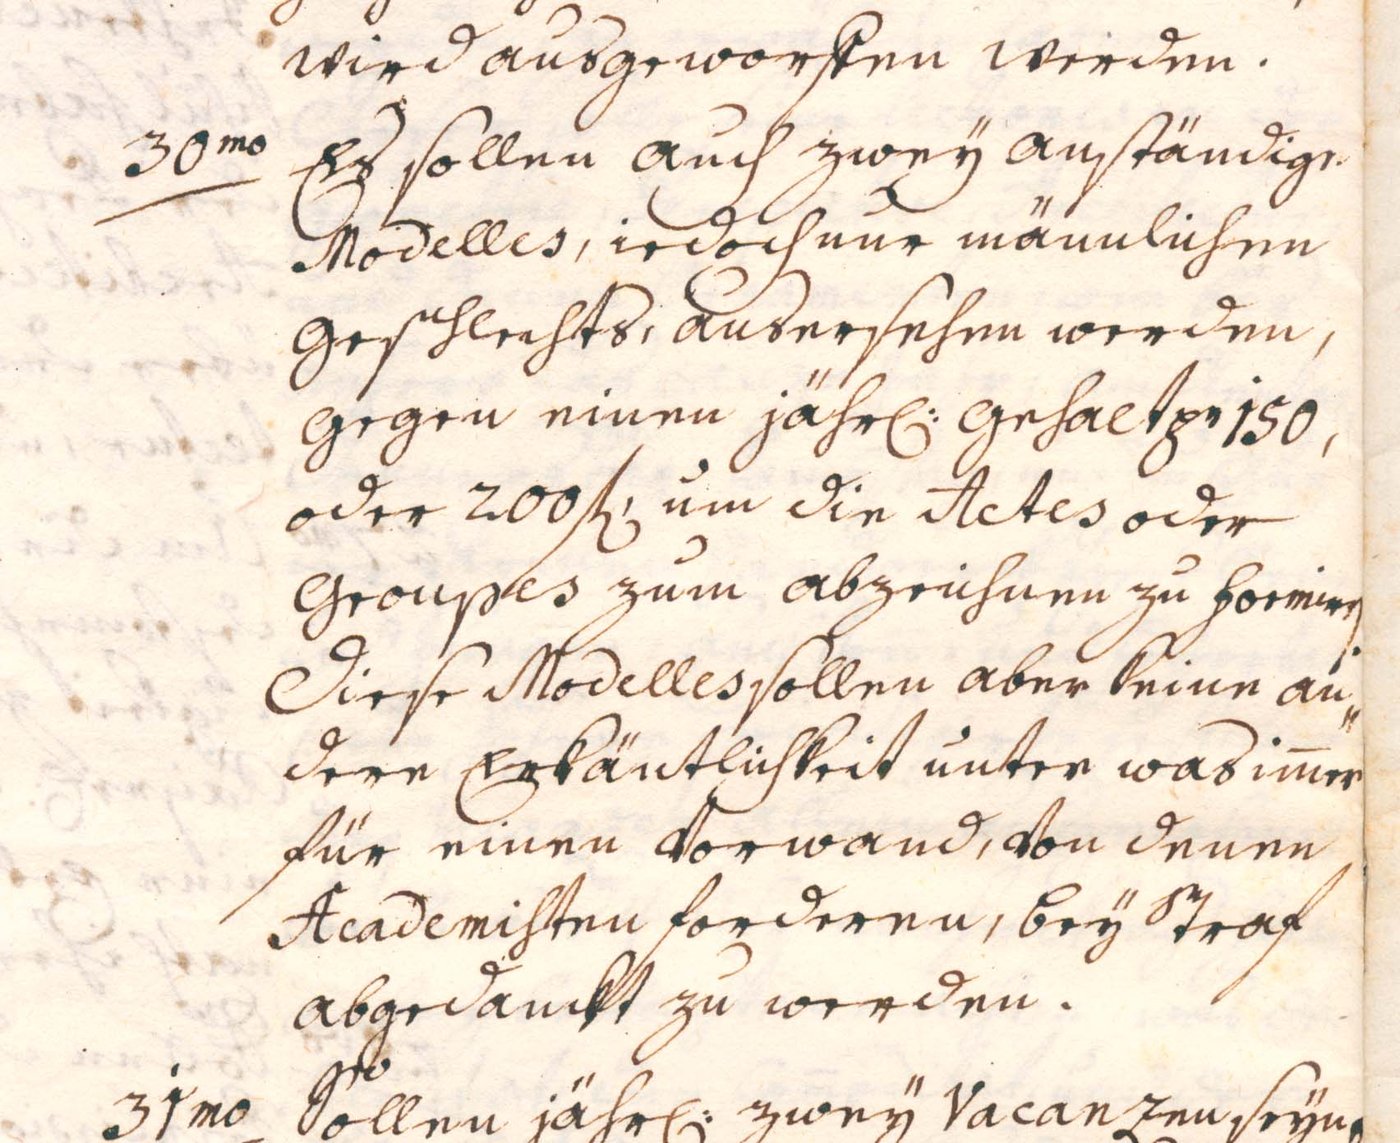 wird ausgeworffen werden.
30mo Es sollen auch zwey anständige
Modelles, iedoch nur männlichen
Geschlechts, ausersehen werden,
gegen einen jährl: Gehalt pr 150,
oder 200 fl, um die Actes oder
Groupes zum abzeichnen zu formiren.
Diese Modelles sollen aber keine an„
dere Erkäntlichkeit unter was im̅er
für einen Vorwand, von denen
Academisten forderen, bey Straf
abgedanckt zu werden.
31mo Sollen jährl: zwey Vacanzen seyn,